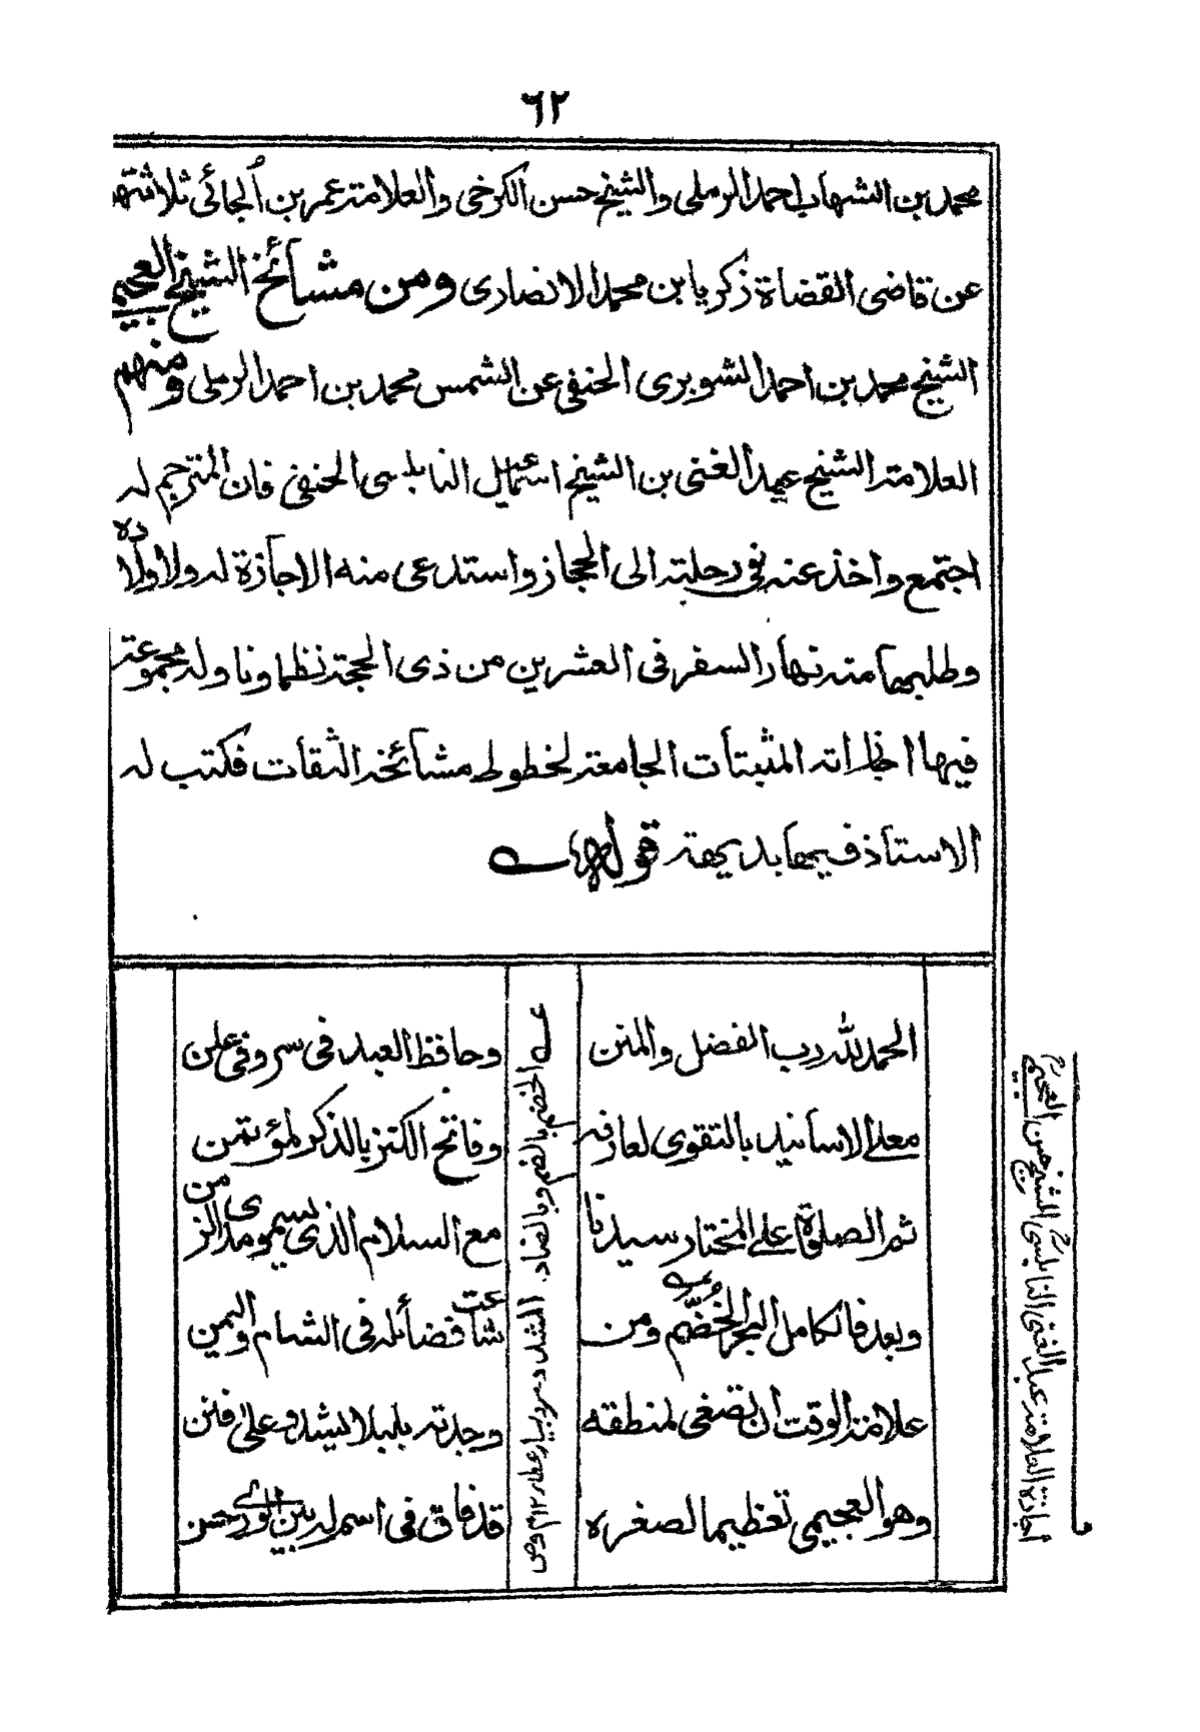 ٦٢
محمد بن الشهاب احمد الرملى والشيخ حسن الكرخى والعلامة عمر بن الجائى ثلاثتهم
عن قاضى القضاة زكريا بن محمد الانصارى ومن مشائخ الشيخ العجيمى
الشيخ محمد بن احمد الشوبرى الحنفى عن الشمس محمد بن احمد الرملى ومنهم
العلامة الشيخ عبد الغنى بن الشيخ اسمعيل النابلسى الحنفى فان المترجم له
اجتمع واخذ عنه فى رحلته الى الحجاز واستدعى منه الاجازة له ولاولاده
وطلبها منه نهار السفر فى العشرين من ذى الحجة نظما وناوله مجموعة
فيها اجازاته المثبتات الجامعة لخطوط مشائخه الثقات فكتب له
الاستاذ فيها بديهة قوله
الحمد لله رب الفضل والمنن
وحافظ العبد فى سر وفى علن
معلى الاسانيد بالتقوى لعارفه
وفاتح الكنز بالذكر لمؤتمن
ثم الصلوة على المختار سيدنا
مع السلام الذى يسمو مدى الزمن
وبعد فالكامل البحر الخضم ومن
شاعت فضائله فى الشام واليمن
علامة الوقت ان تصغى لمنطقه
وجدته بلبلا يشدو على فنن
وهو العجيمى تعظيما لصغره
قد فاق فى اسم له بين الورى حسن
عـه الخضم بالضم وبالضاد المشدد مرد بسيار عطا ١٢
اجازة العلامة عبد الغنى النابلسى الشيخ حسن العجيمى